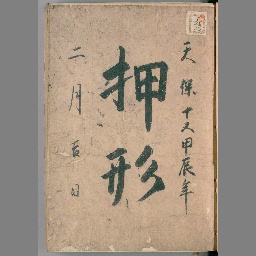 天保十又甲辰年
押形
二月吉日